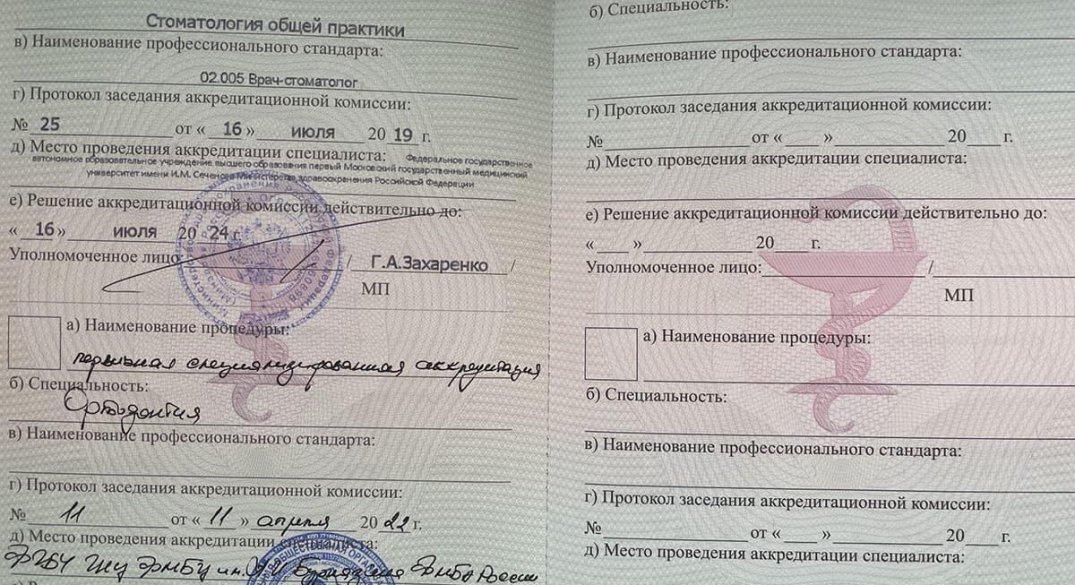 Стоматология общей практики
в) Наименование профессионального стандарта:
02.005 Врач-стоматолог
г) Протокол заседания аккредитационной комиссии:
№ 25 от « 16 » июля 20 19 г.
д) Место проведения аккредитации специалиста: Федеральное государственное
автономное образовательное учреждение высшего образования первый Московский государственный медицинский
университет имени И.М. Сеченова Министерства здравоохранения Российской Федерации
е) Решение аккредитационной комиссии действительно до:
« 16 » июля 20 24 г.
Уполномоченное лицо / Г.А.Захаренко /
МП
а) Наименование процедуры:
первичная специализированная аккредитация
б) Специальность:
Ортодонтия
в) Наименование профессионального стандарта:
г) Протокол заседания аккредитационной комиссии:
№ 11 от « 11 » апреля 20 22 г.
д) Место проведения аккредитации специалиста:
ФГБУ ГНЦ ФМБЦ им. Бурназяна ФМБА России
б) Специальность:
в) Наименование профессионального стандарта:
г) Протокол заседания аккредитационной комиссии:
№ от « » 20 г.
д) Место проведения аккредитации специалиста:
е) Решение аккредитационной комиссии действительно до:
« » 20 г.
Уполномоченное лицо: /
МП
а) Наименование процедуры:
б) Специальность:
в) Наименование профессионального стандарта:
г) Протокол заседания аккредитационной комиссии:
№ от « » 20 г.
д) Место проведения аккредитации специалиста: